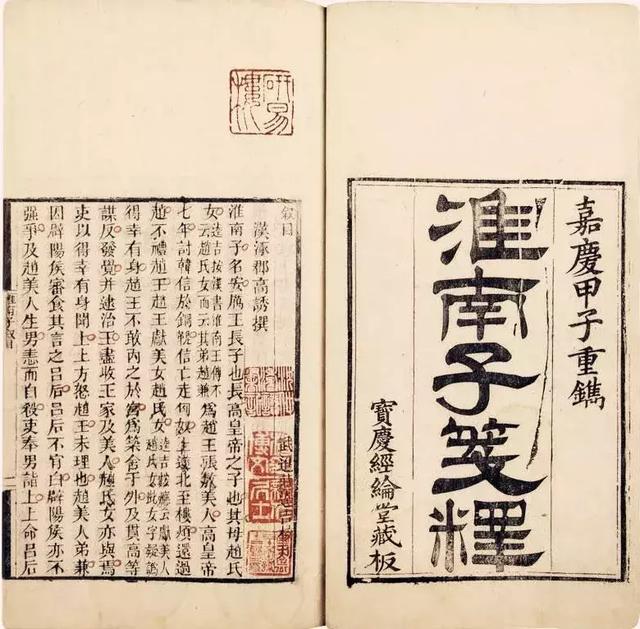 嘉慶甲子重鐫
淮南子箋釋
寶慶經綸堂藏板
研易樓
敘目
漢涿郡高誘撰
武進莊
淮南子名安厲王長子也長高皇帝之子也其母趙氏
女逵吉按漢書淮南王傳不云趙氏女而云其弟趙兼為趙王張敖美人高皇帝
七年討韓信於銅鞮信亡走匈奴上遂北至樓煩還過
趙不禮趙王趙王獻美女趙氏女逵吉按藏云獻美人趙氏女女字疑譌
得幸有身趙王不敢內之於宮為築舍于外及貫高等
謀反發覺并逮治王盡收王家及美人趙氏女亦與焉
吏以得幸有身聞上上方怒趙王未理也趙美人弟兼
因辟陽侯審食其言之呂后呂后不肯白辟陽侯亦不
強爭及趙美人生男恚而自殺吏奉男詣上上命呂后
淮南子敘目